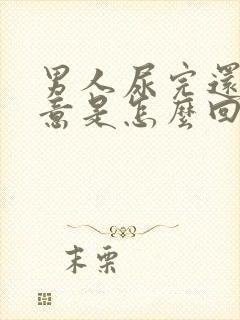 男人尿完還
意是怎麼回
末栗